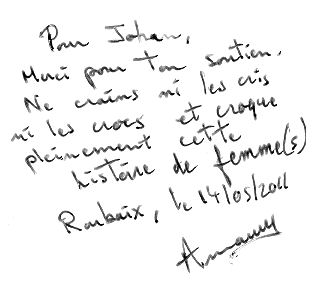 Pour Johan,
Merci pour ton soutien.
Ne crains ni les cris
ni les crocs et croque
pleinement cette
histoire de femme(s)
Roubaix, le 14/05/2011
Amaury